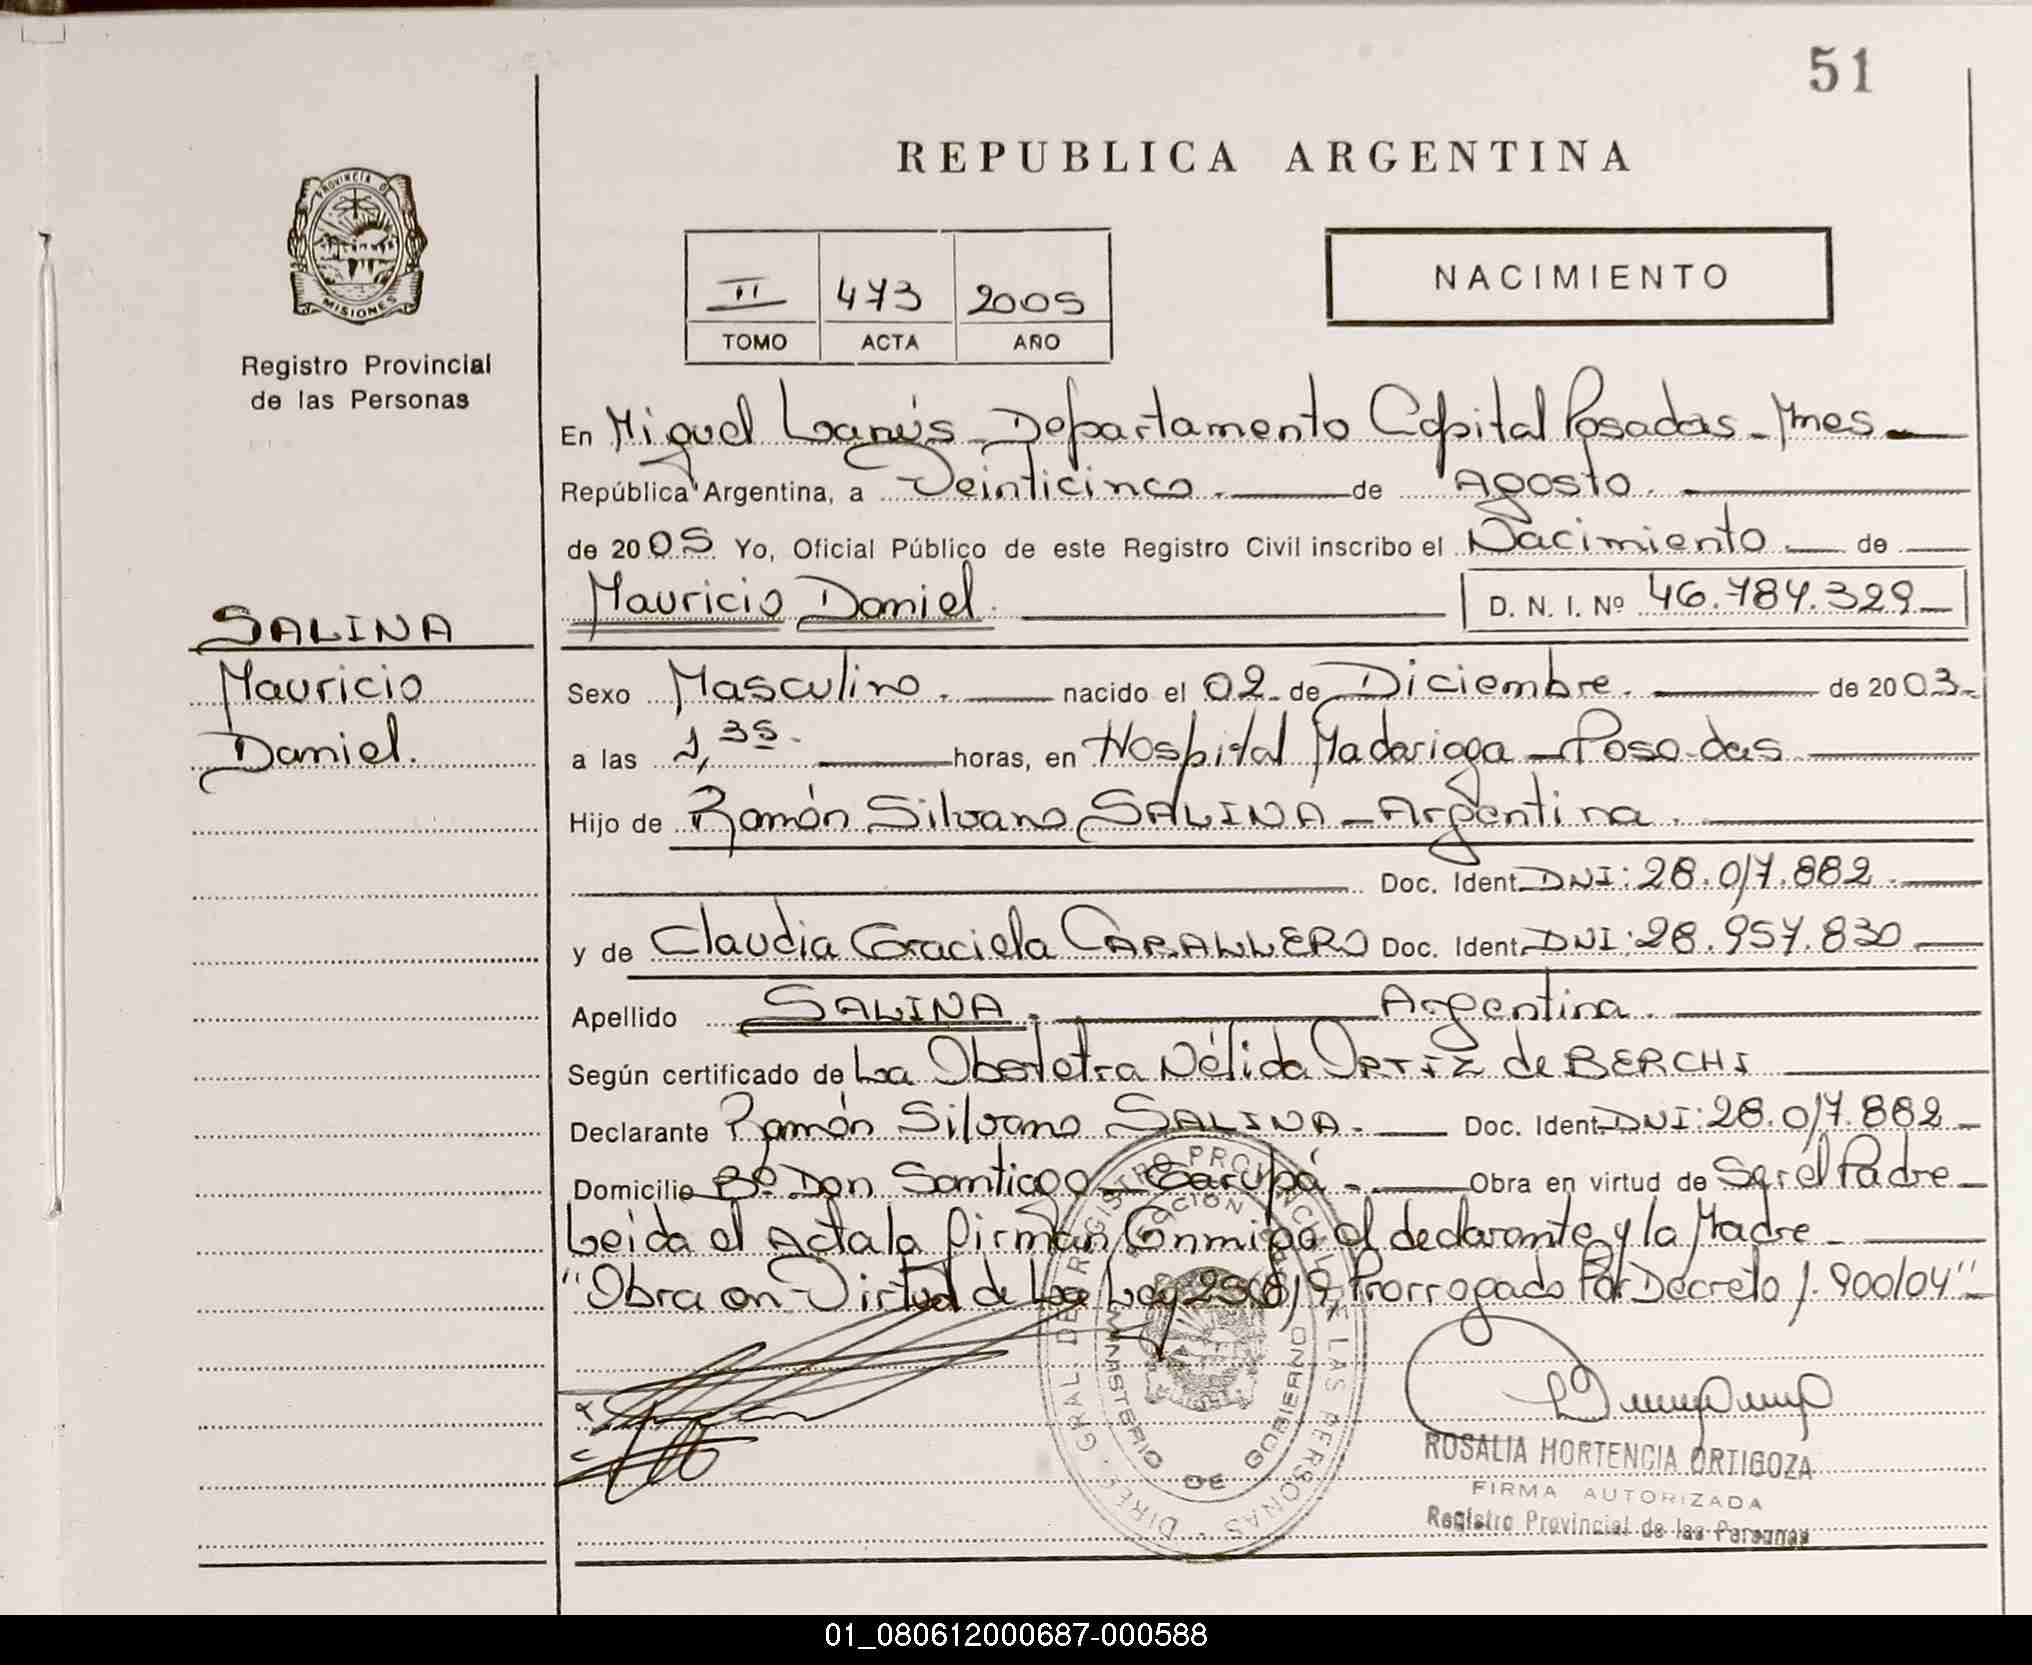 51
REPUBLICA ARGENTINA
PROVINCIA DE
MISIONES
Registro Provincial
de las Personas
II 473 2005
TOMO ACTA AÑO
NACIMIENTO
En Miguel Lanús - Departamento Capital Posadas - Mnes
República Argentina, a Veinticinco. de Agosto.
de 2005 Yo, Oficial Público de este Registro Civil inscribo el Nacimiento de
Mauricio Daniel. D. N. I. Nº 46.784.329
SALINA
Mauricio
Daniel.
Sexo Masculino. nacido el 02 de Diciembre. de 2003.
a las 1,35. horas, en Hospital Madariaga - Posadas
Hijo de Ramón Silvano SALINA - Argentina.
Doc. Ident. DNI: 28.017.882.
y de Claudia Graciela CABALLERO Doc. Ident. DNI: 28.957.830
Apellido SALINA. Argentina.
Según certificado de La Obstetra Nélida ORTIZ de BERCHI
Declarante Ramón Silvano SALINA. Doc. Ident. DNI: 28.017.882
Domicilio Bº Don Santiago - Garupá. Obra en virtud de Ser el Padre
Leida el Acta la firman Conmigo el declarante y la Madre
"Obra en Virtud de La Ley 25819, Prorrogado Por Decreto 1.900/04"
DIREC. GRAL. DE REGISTRO PROVINCIAL DE LAS PERSONAS
MINISTERIO DE GOBIERNO
ROSALIA HORTENCIA ORTIGOZA
FIRMA AUTORIZADA
Registro Provincial de las Personas
01_080612000687-000588